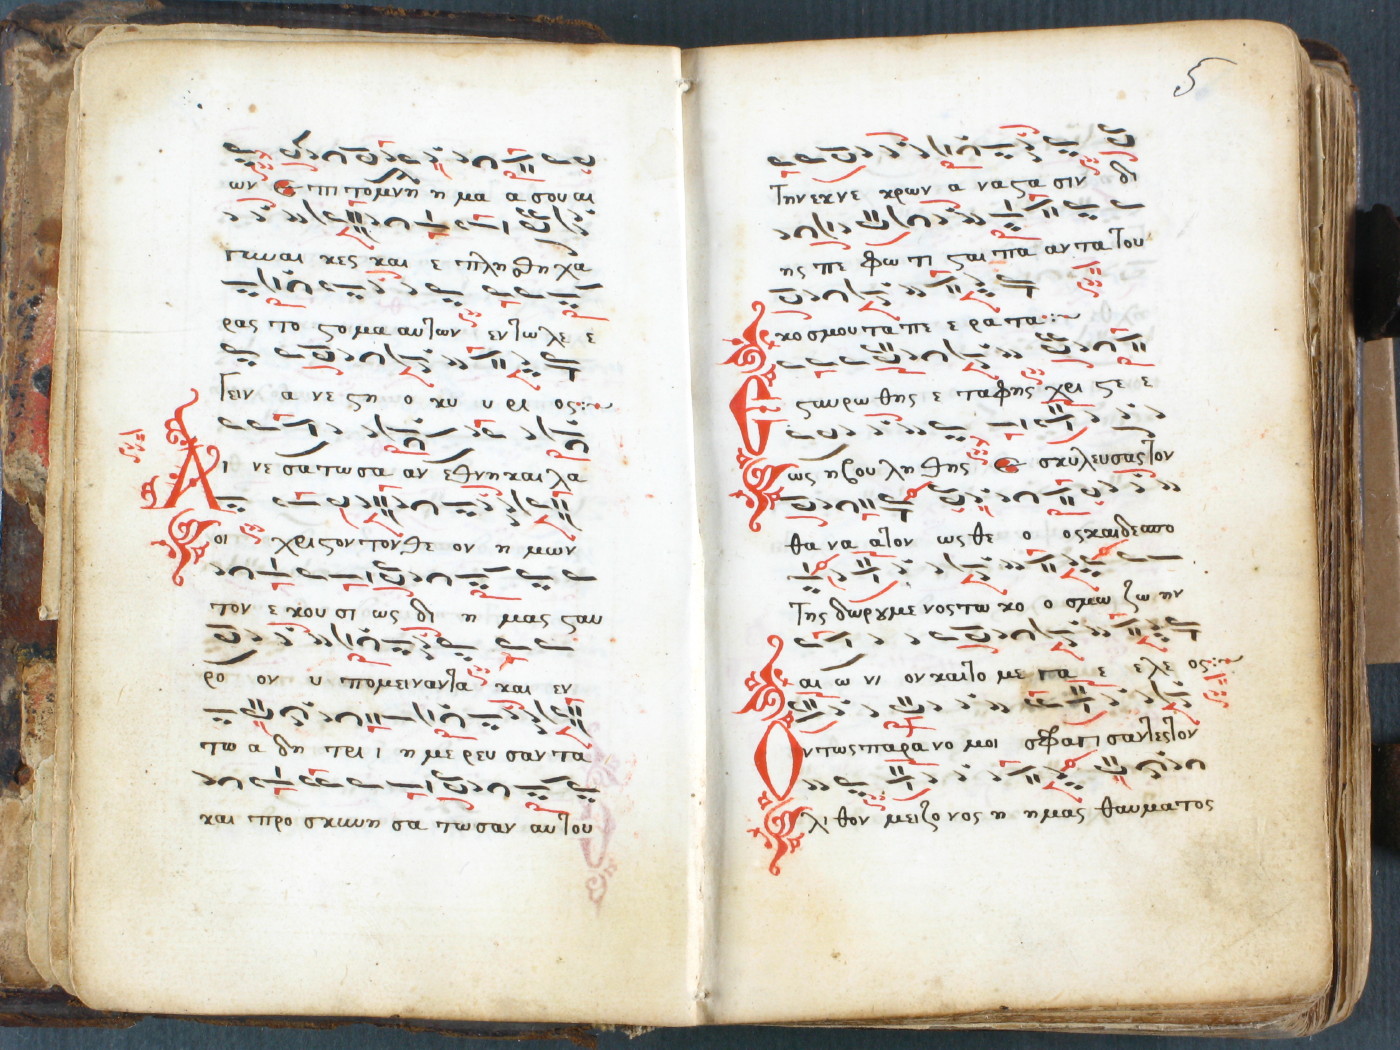 ων ε πι το μνη η μα α σου αι
γυναι κες και ε πλη θη χα
ρας το ϛο μα αυτων εν τω λε ε
γειν α νε ϛη ο κυ υ ρι ος
Αι νε σα τω σα αν ε θνη και λα
οι χρι ϛον τον θε ον η μων
τον ε κου σι ως δι η μας ϛαυ
ρο ον υ πο μειναντα και εν
τω α δη τρι ι η με ρευ σαν τα
και προ σκυνη σα τω σαν αυτου
5
την εκ νε κρων α να ϛα σιν δι
ης πε φω τι ϛαι πα αν τα του
κο σμου τα πε ε ρα τα
Εϛαυρω θης ε ταφης χρι ϛε ε
ως η βου λη θης ε σκυλευσας τον
θα να α τον ως θε ο ος και δεσπο
της δωρουμε νος τω κο ο σμω ζω ην
αι ω νι ον και το με γα ε ελε ος
Οντως παρα νο μοι σφραγι σαντες τον
λι θον μειζο νος η ημας θαυματος